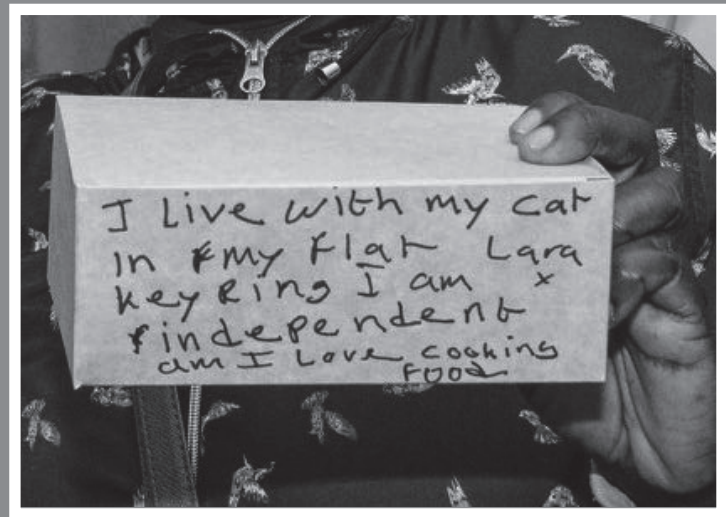 I Live with my cat
in my flat Lara
keyRing I am x
independent
am I Love cooking
food